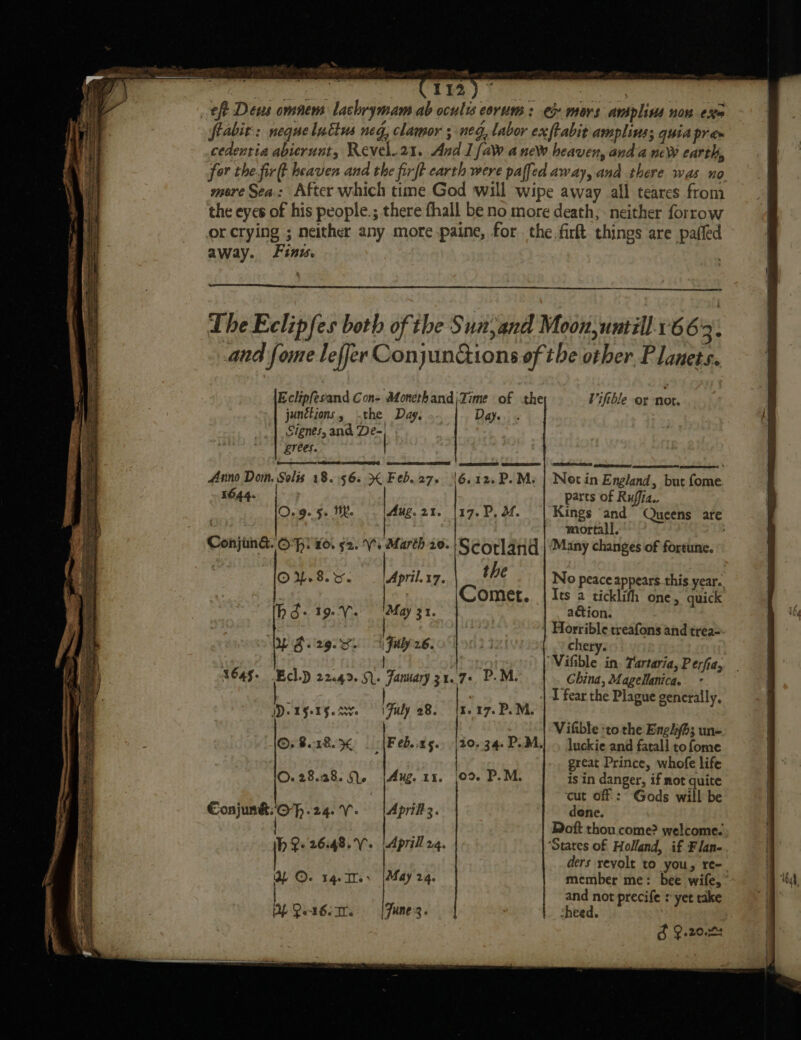 (112)
eſt Deus omnem lachrymam ab oculis eorum : & mors amplius non ex-
ſtabit : neque luctus neq, clamor ; neq, labor exſtabit amplius; quia præ-
cedentia abierunt, Revel. 21. And I ſaw a new heaven, and a new earth,
for the firſt heaven and the firſt earth were paſſed away, and there was no
more Sea : After which time God will wipe away all teares from
the eyes of his people ; there ſhall be no more death, neither ſorrow
or crying ; neither any more paine, for the firſt things are paſſed
away. Finis.
The Eclipſes both of the Sun, and Moon, untill 1663.
and ſome leſſer Conjunctions of the other Planets.
Eclipſes and Con- Moneth and Time of the Viſible or not.
junctions, the Day. Day.
Signes, and De-
grees.
Anno Dom. Solis 18. 56. ♓ Feb. 27. 6. 12. P. M. Not in England, but ſome
1644. parts of Ruſſia.
☉. 9. 5. ♍. Aug. 21. 17. P. M. Kings and Queens are
mortall.
Conjunct. ☉ ♄. 10. 52. ♈. March 20. Scotland Many changes of fortune.
☉ ♃. 8. ♉. April. 17. the No peace appears this year.
Comet. Its a tickliſh one, quick
♄ ♂. 19. ♈. May 31. action.
Horrible treaſons and trea-
♃ ♂. 29. ♉. July 26. chery.
Viſible in Tartaria, Perſia,
1645. Ecl. ☽ 22. 42. ♌. January 31. 7. P. M. China, Magellanica.
I fear the Plague generally.
☽. 15. 15. ♒. July 28. 1. 17. P. M.
Viſible to the Engliſh; un-
☉. 8. 18. ♓ Feb. 15. 10. 34. P. M. luckie and fatall to ſome
great Prince, whoſe life
☉. 28. 28. ♌. Aug. 11. 00. P. M. is in danger, if not quite
cut off : Gods will be
Conjunct. ☉ ♄. 24. ♈. April 3. done.
Doſt thou come? welcome.
♄ ♀. 26. 48. ♈. April 24. States of Holland, if Flan-
ders revolt to you, re-
♃ ☉. 14. ♊. May 24. member me : bee wiſe,
and not preciſe : yet take
♃ ♀. 16. ♊. June 3. heed.
♂ ♀. 20. ♎